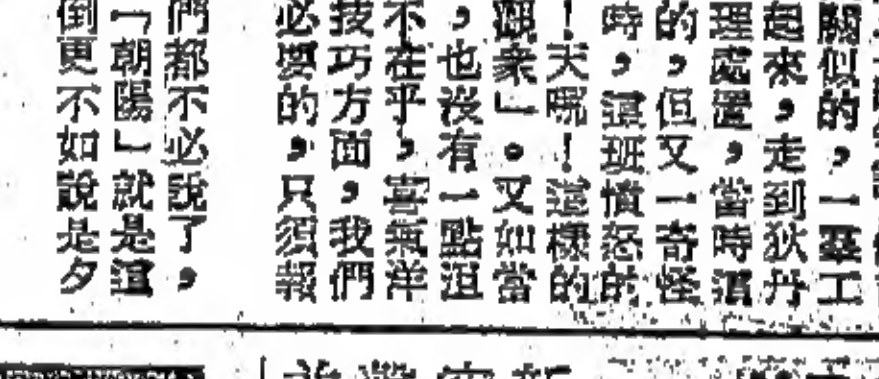 關似的，一羣工
起來，走到狄丹
理處置，當時
的，但又一奇怪
時，這班憤怒的
！天呢！這樣的
觀衆」。又如當
，也沒有一點沮
不在乎，喜氣洋
技巧方面，我們
必要的，只須報
們都不必說了，
「朝陽」就是這
倒更不如說是夕